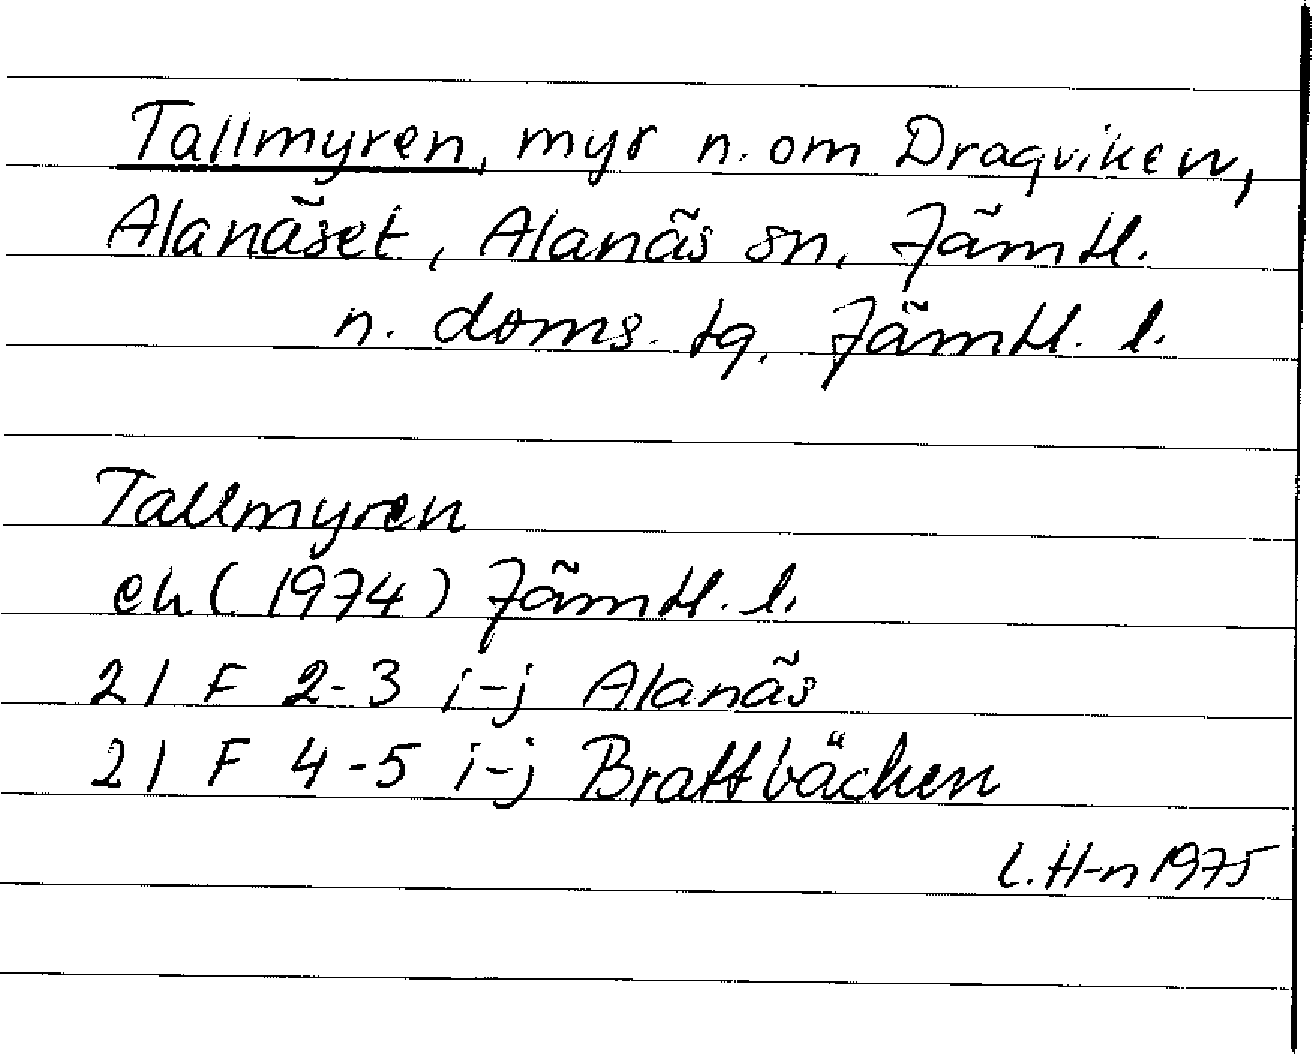 Tallmyren, myr n. om Dragviken,
Alanäset, Alanäs sn, Jämtl.
n. doms. tg. Jämtl. l.
Tallmyren
ek (1974) Jämtl. l.
21 F 2-3 i-j Alanäs
21 F 4-5 i-j Brattbäcken
L. H-n 1975